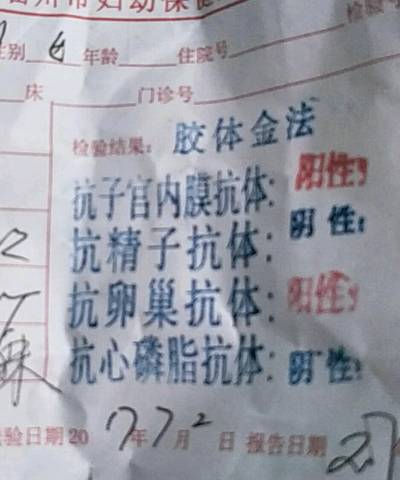 州市妇幼保
性别 女 年龄 住院号 检验号
床 门诊号
检验结果: 胶体金法
抗子宫内膜抗体: 阳性
抗精子抗体: 阴性
抗卵巢抗体: 阳性
抗心磷脂抗体: 阴性
验日期20 年 7月2日 报告日期